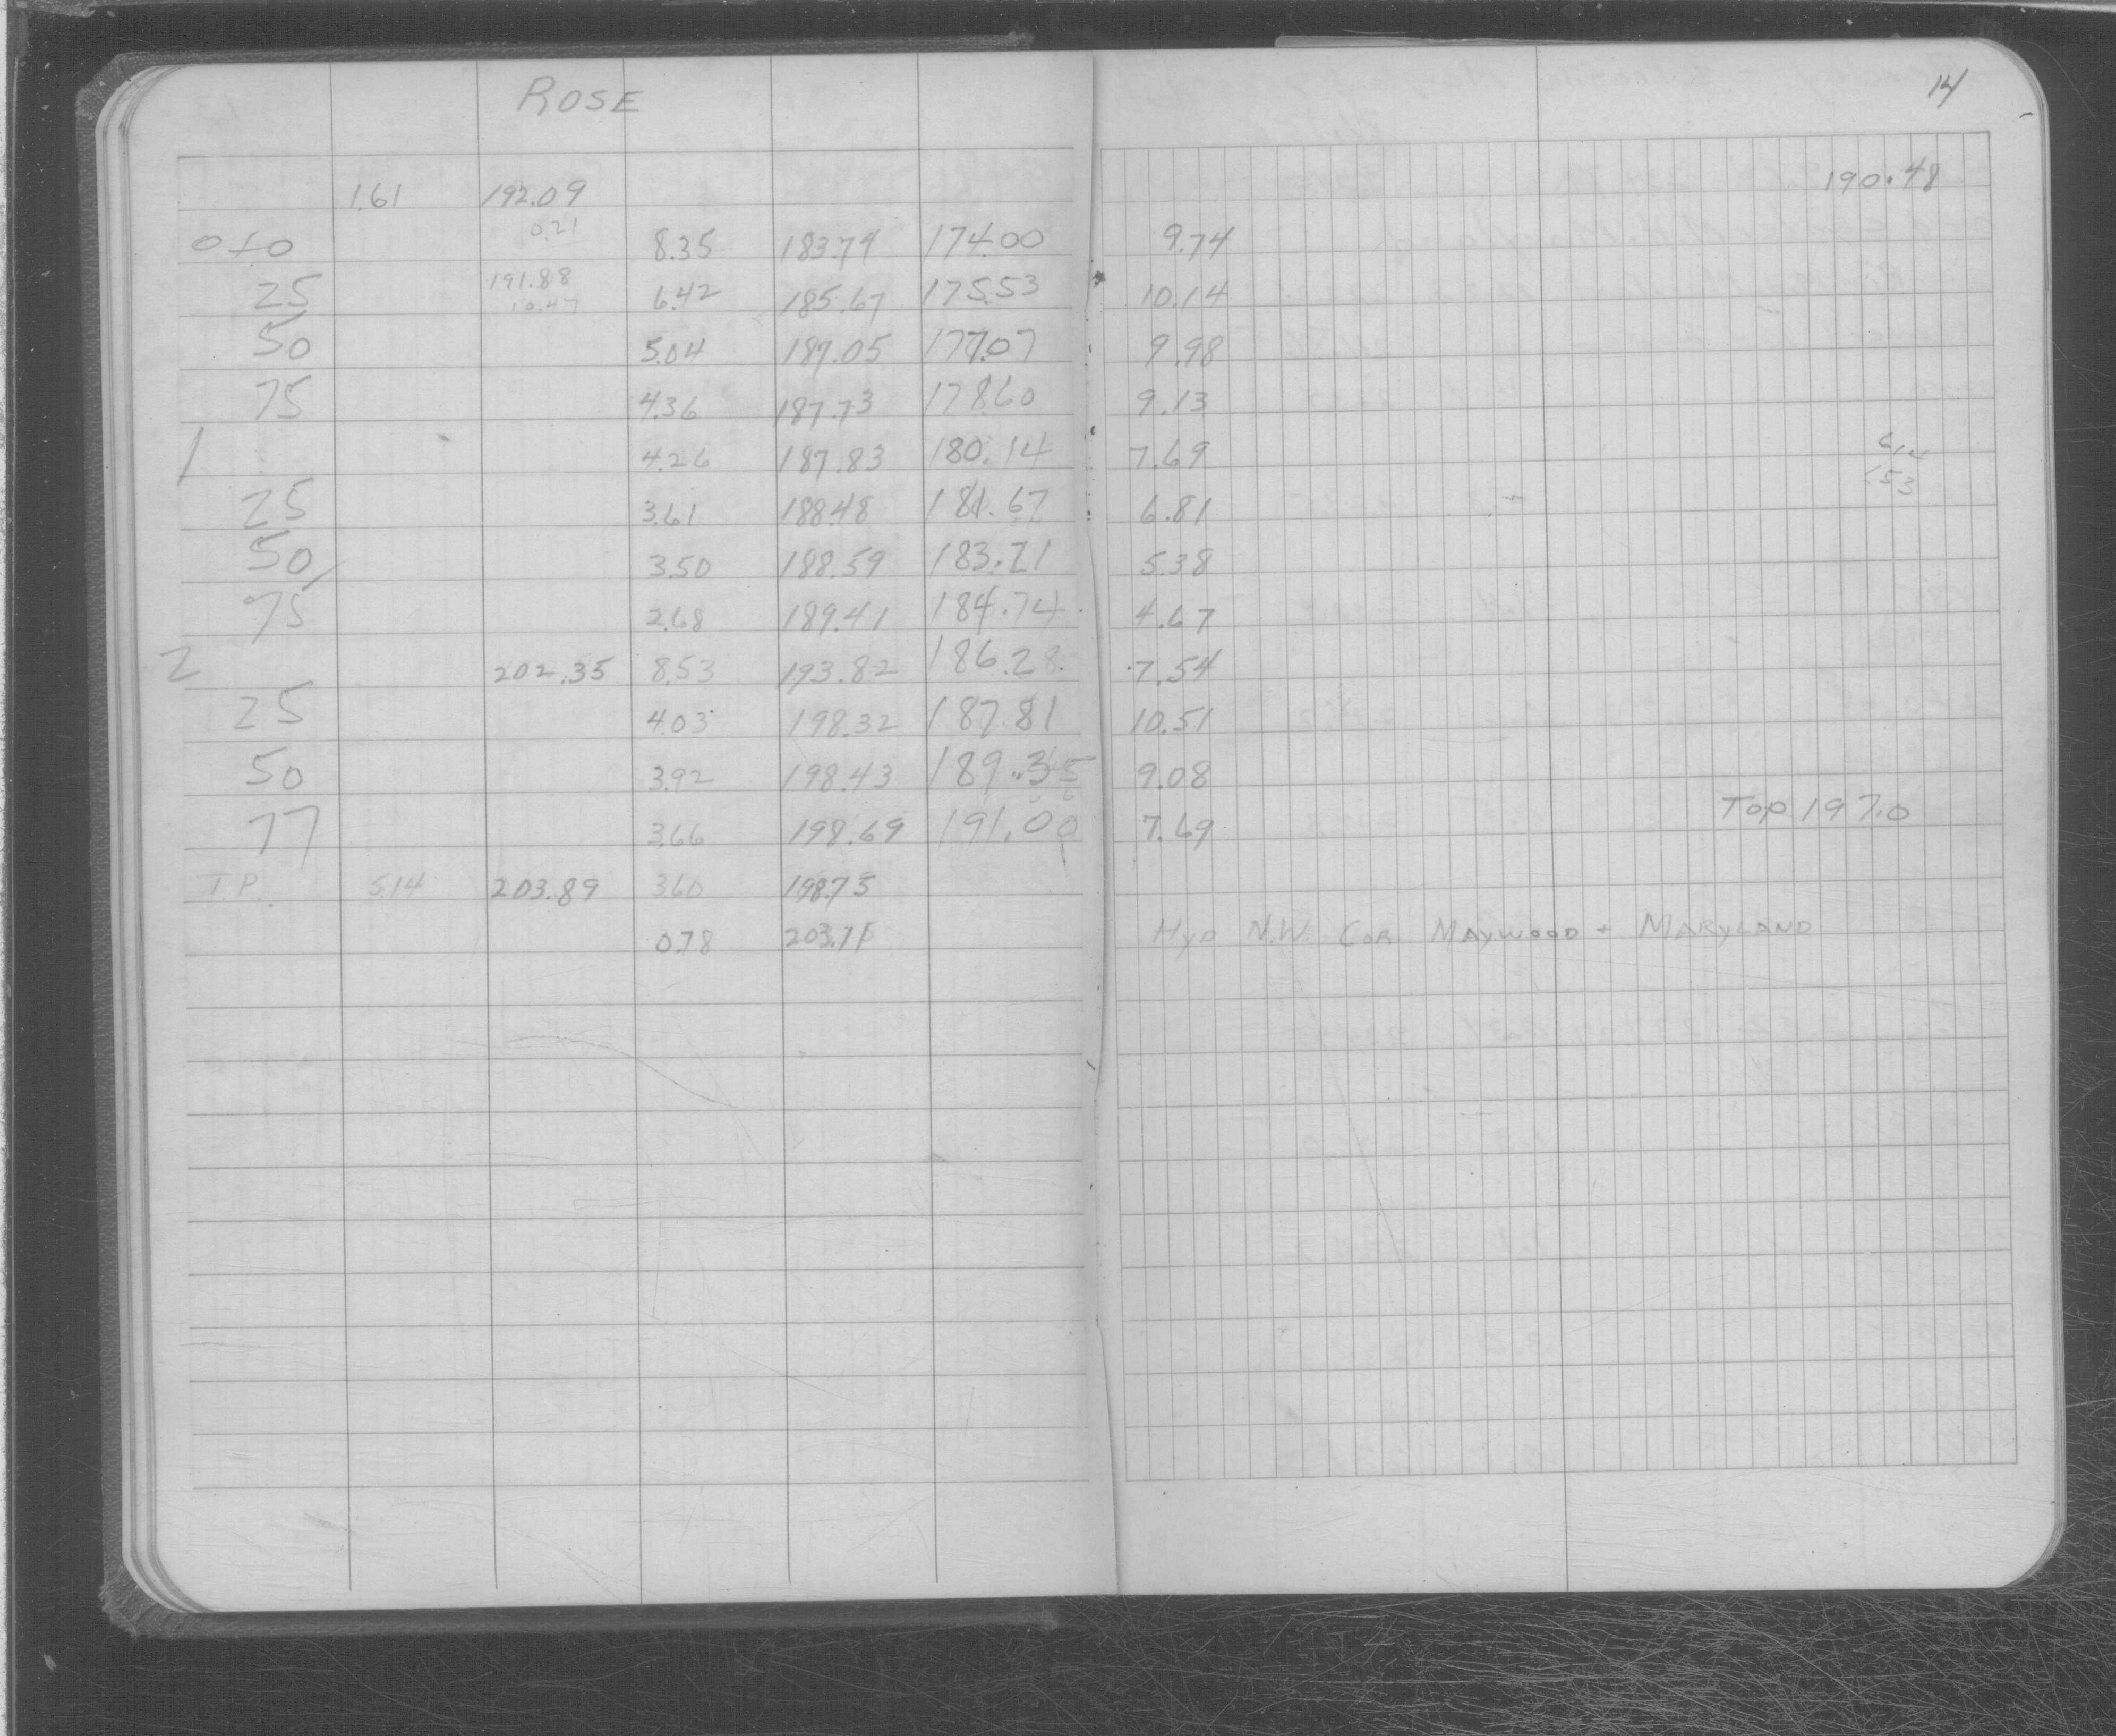 ROSE
14
1.61 192.09 190.48
0.21
0+0 8.35 183.74 174.00 9.74
191.88
25 10.47 6.42 185.67 175.53 10.14
50 5.04 187.05 177.07 9.98
75 4.36 187.73 178.60 9.13
1 4.26 187.83 180.14 7.69
614
153
25 3.61 188.48 181.67 6.81
50 3.50 188.59 183.21 5.38
75 2.68 189.41 184.74 4.67
2 202.35 8.53 193.82 186.28 7.54
25 4.03 198.32 187.81 10.51
50 3.92 198.43 189.35 9.08
Top 197.0
77 3.66 198.69 191.00 7.69
T.P. 5.14 203.89 3.60 198.75
0.78 203.11 Hyd N.W. Cor Maywood + Maryland